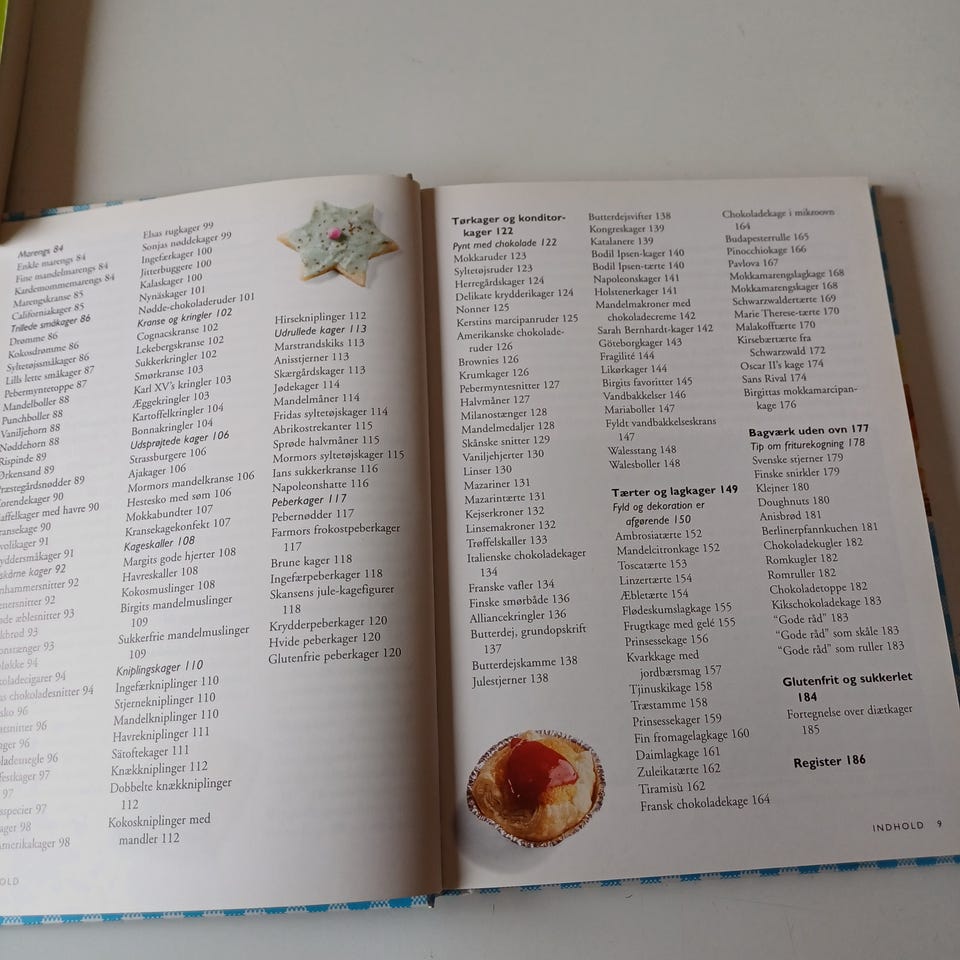 Marengs 84
Enkle marengs 84
Fine mandelmarengs 84
Kardemommemarengs 84
Marengskranse 85
Californiakager 85
Trillede småkager 86
Drømme 86
Kokosdrømme 86
Syltetøjssmåkager 86
Lills lette småkager 87
Pebermyntetoppe 87
Mandelboller 88
Punchboller 88
Vaniljehorn 88
Nøddehorn 88
Rispinde 89
Ørkensand 89
Præstegårdsnødder 89
90
med havre 90
90
91
91
kager 92
92
92
æblesnitter 93
93
93
94
94
chokoladesnitter 94
96
96
96
96
97
97
97
98
98
Elsas rugkager 99
Sonjas nøddekager 99
Ingefærkager 100
Jitterbuggere 100
Kalaskager 100
Nynäskager 101
Nødde-chokoladeruder 101
Kranse og kringler 102
Cognacskranse 102
Lekebergskranse 102
Sukkerkringler 102
Smørkranse 103
Karl XV's kringler 103
Æggekringler 103
Kartoffelkringler 104
Bonnakringler 104
Udsprøjtede kager 106
Strassburgere 106
Ajakager 106
Mormors mandelkranse 106
Hestesko med søm 106
Mokkabundter 107
Kransekagekonfekt 107
Kageskaller 108
Margits gode hjerter 108
Havreskaller 108
Kokosmuslinger 108
Birgits mandelmuslinger
109
Sukkerfrie mandelmuslinger
109
Kniplingskager 110
Ingefærkniplinger 110
Stjernekniplinger 110
Mandelkniplinger 110
Havrekniplinger 111
Sätoftekager 111
Knækkniplinger 112
Dobbelte knækkniplinger
112
Kokoskniplinger med
mandler 112
Hirsekniplinger 112
Udrullede kager 113
Marstrandskiks 113
Anisstjerner 113
Skærgårdskager 113
Jødekager 114
Mandelmåner 114
Fridas syltetøjskager 114
Abrikostrekanter 115
Sprøde halvmåner 115
Mormors syltetøjskager 115
Ians sukkerkranse 116
Napoleonshatte 116
Peberkager 117
Pebernødder 117
Farmors frokostpeberkager
117
Brune kager 118
Ingefærpeberkager 118
Skansens jule-kagefigurer
118
Krydderpeberkager 120
Hvide peberkager 120
Glutenfrie peberkager 120
Tørkager og konditor-
kager 122
Pynt med chokolade 122
Mokkaruder 123
Syltetøjsruder 123
Herregårdskager 124
Delikate krydderikager 124
Nonner 125
Kerstins marcipanruder 125
Amerikanske chokolade-
ruder 126
Brownies 126
Krumkager 126
Pebermyntesnitter 127
Halvmåner 127
Milanostænger 128
Mandelmedaljer 128
Skånske snitter 129
Vaniljehjerter 130
Linser 130
Mazariner 131
Mazarintærte 131
Kejserkroner 132
Linsemakroner 132
Trøffelskaller 133
Italienske chokoladekager
134
Franske vafler 134
Finske smørbåde 136
Alliancekringler 136
Butterdej, grundopskrift
137
Butterdejskamme 138
Julestjerner 138
Butterdejsvifter 138
Kongreskager 139
Katalanere 139
Bodil Ipsen-kager 140
Bodil Ipsen-tærte 140
Napoleonskager 141
Holstenerkager 141
Mandelmakroner med
chokoladecreme 142
Sarah Bernhardt-kager 142
Göteborgkager 143
Fragilité 144
Likørkager 144
Birgits favoritter 145
Vandbakkelser 146
Mariaboller 147
Fyldt vandbakkelseskrans
147
Walesstang 148
Walesboller 148
Tærter og lagkager 149
Fyld og dekoration er
afgørende 150
Ambrosiatærte 152
Mandelcitronkage 152
Toscatærte 153
Linzertærte 154
Æbletærte 154
Flødeskumslagkage 155
Frugtkage med gelé 155
Prinsessekage 156
Kvarkkage med
jordbærsmag 157
Tjinuskikage 158
Træstamme 158
Prinsessekage 159
Fin fromagelagkage 160
Daimlagkage 161
Zuleikatærte 162
Tiramisù 162
Fransk chokoladekage 164
Chokoladekage i mikroovn
164
Budapesterrulle 165
Pinocchiokage 166
Pavlova 167
Mokkamarengslagkage 168
Mokkamarengskager 168
Schwarzwaldertærte 169
Marie Therese-tærte 170
Malakofftærte 170
Kirsebærtærte fra
Schwarzwald 172
Oscar II's kage 174
Sans Rival 174
Birgittas mokkamarcipan-
kage 176
Bagværk uden ovn 177
Tip om friturekogning 178
Svenske stjerner 179
Finske snirkler 179
Klejner 180
Doughnuts 180
Anisbrød 181
Berlinerpfannkuchen 181
Chokoladekugler 182
Romkugler 182
Romruller 182
Chokoladetoppe 182
Kikschokoladekage 183
"Gode råd" 183
"Gode råd" som skåle 183
"Gode råd" som ruller 183
Glutenfrit og sukkerlet
184
Fortegnelse over diætkager
185
Register 186
INDHOLD 9